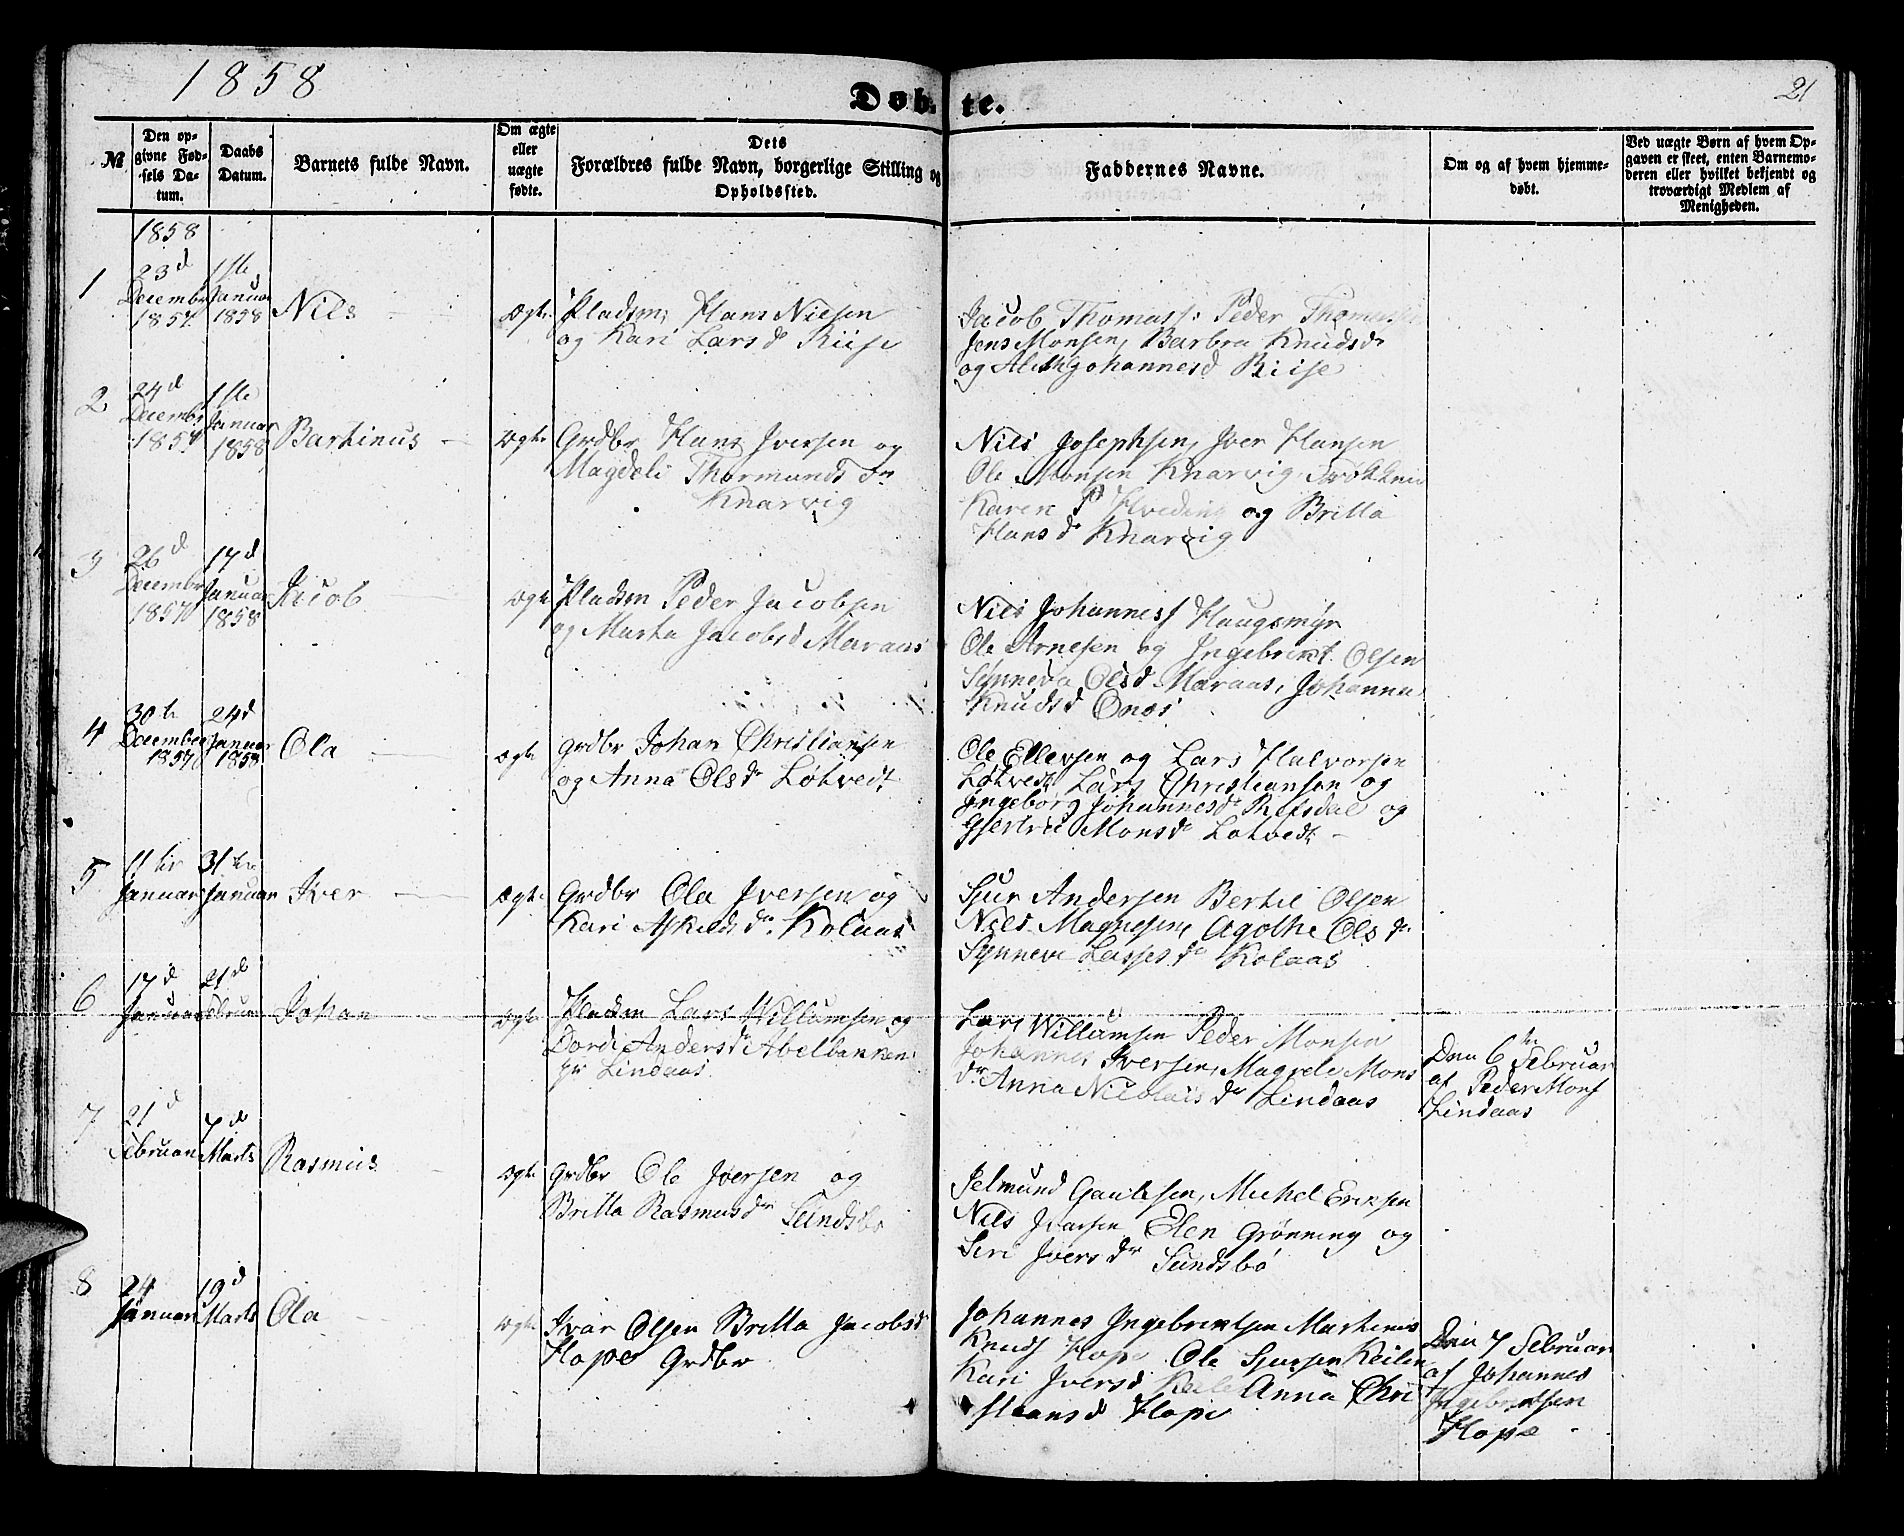 1858
Døbte.
21
№
Den op-
givne Fød-
sels Da-
tum.
Daabs
Datum.
Barnets fulde Navn.
Om ægte
eller
uægte
fødte.
Dets
Forældres fulde Navn, borgerlige Stilling og
Opholdssted.
Faddernes Navne.
Om og af hvem hjemme-
døbt.
Ved uægte Børn af hvem Op-
gaven er skeet, enten Barnemo-
deren eller hvilket bekjendt og
troværdigt Medlem af
Menigheden.
1858
1
23d
Decembr
1857
1ste
Januar
1858
Nils
Ægte
Pladsm. Hans Nielsen
og Kari Larsd Riise
Jacob Thomass: Peder Thomassen
Jens Monsen, Barbra Knudsdr
og Johannesd Riise
2
24d
Decembr
1857
1ste
Januar
1858
Bartinus
Ægte
Grdbr Hans Iversen og
Magdeli Thormundsdr
Knarvig
Nils Josephsen, Iver Hansen
Ole Monsen Knarvig
Karen Hveding og Britta
Hansdr Knarvig
3
26d
Decembr
1857
17d
Januar
1858
Jacob
Ægte
Pladsm Peder Jacobsen
og Marta Jacobsd Maraas
Nils Johanness Haugsmyr
Ole Arnesen og Ingebrikt Olsen
Synneva Olsd Maraas, Johanna
Knudsd Onæs
4
30te
December
1857
24d
Januar
1858
Ola
Ægte
Grdbr Johan Christiansen
og Anna Olsdr Løtvedt
Ole Ellevsen og Lars Halvorsen
Løtvedt Lars Christiansen og
Ingeborg Johannesdr Refsdal og
Gjertrud Monsdr Løtvedt
5
11te
Januar
31te
Januar
Iver
Ægte
Grdbr Ola Iversen og
Kari Askildsdr. Kolaas
Sjur Andersen Bertil Olsen
Nils Magnesen, Agothe Olsdr
Synneve Lassesdr Kolaas
6
17d
Januar
21d
Februar
Johan
Ægte
Pladsm Lars Willumsen og
Dordi Andersdr Abelbakken
pr Lindaas
Lars Willumsen Peder Monsen
Johannes Iversen, Magrele Mons
dr Anna Nicolaisdr Lindaas
Den 6te Februar
af Peder Mons
Lindaas
7
21d
Februar
7d
Marts
Rasmus
Ægte
Grdbr Ole Iversen og
Britta Rasmusdr Sundsbø
Selmund Gautesen, Michel Eriksen
Nils Ivarsen Elen Grønning og
Siri Iversdr Sundsbø
8
24
Januar
19d
Marts
Ola
Ægte
Ivar Olsen Britta Jacobsd
Hope Grdbr
Johannes Ingebrigtsen Martinus
Knuds Hope Ole Sjursen Keilen
Kari Iversd Keile Anna Chri
stiansd Hope
Den 7 Februar
af Johannes
Ingebrigtsen
Hope